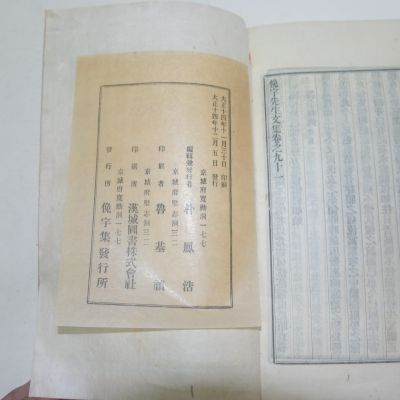 大正十四年十一月三十日 印刷
大正十四年十二月五日 發行
京城府寬勳洞一七七
編輯兼發行者 朴鳳浩
京城府堅志洞三二
印刷者 魯基禎
京城府堅志洞三二
印刷所 漢城圖書株式會社
京城府寬勳洞一七七
發行所 俛宇集發行所
俛宇先生文集卷之九十一